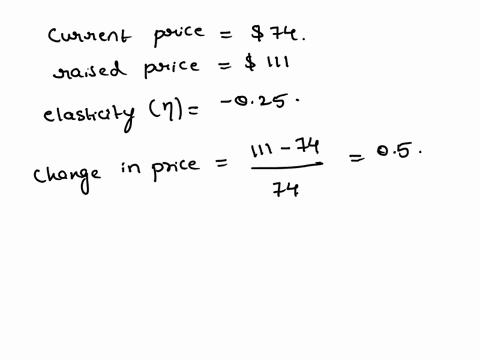 Current price = $ 74.
raised price = $ 111
elasticity (η) = -0.25.
Change in price = 111 - 74 / 74 = 0.5.